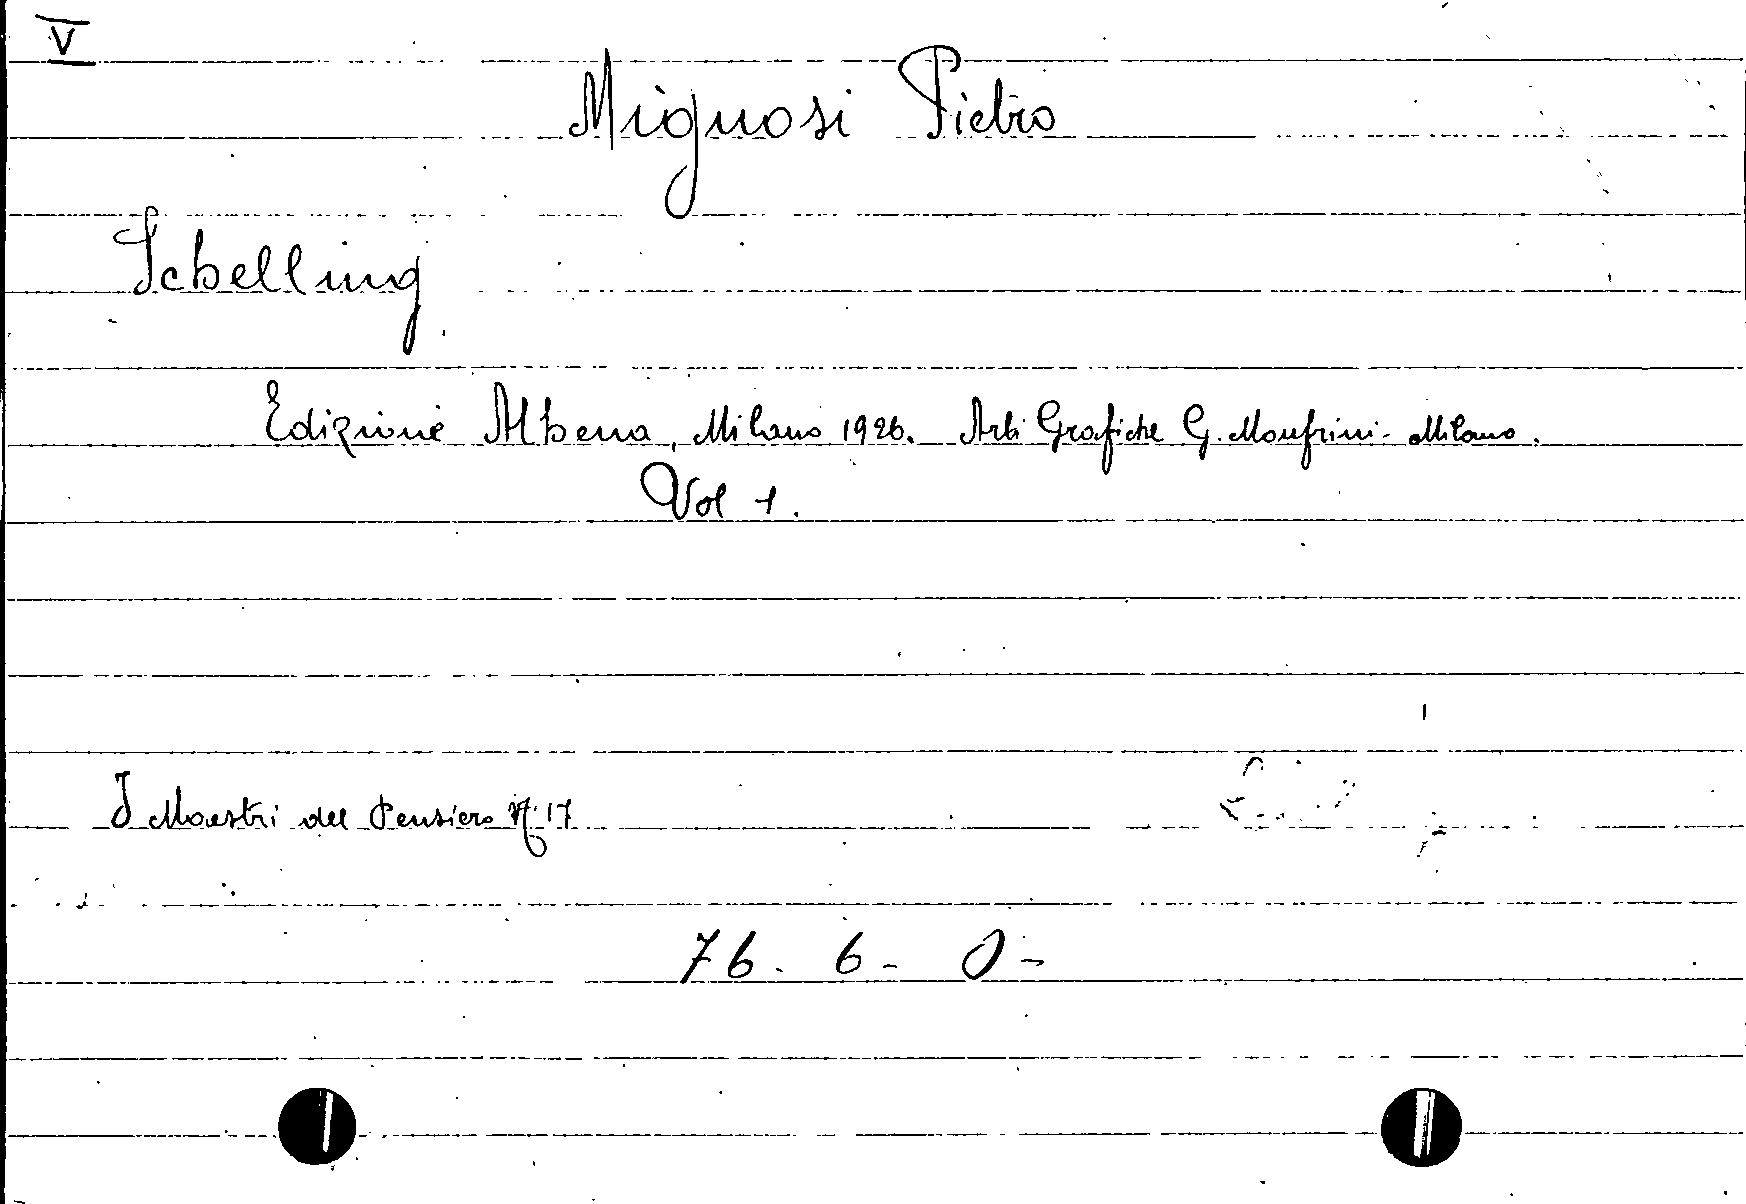 V
Mignosi Pietro
Schelling
Edizione Athena, Milano 1926. Arti Grafiche G. Monfrini - Milano.
Vol 1.
I Maestri del Pensiero N. 17
76. 6 - 0 -